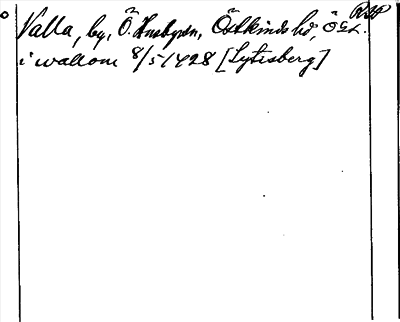 RAP
Valla, by, Ö. Husbyen, Östkinds hd, Ögl.
i wallom 8/5 1428 [Lytisberg]